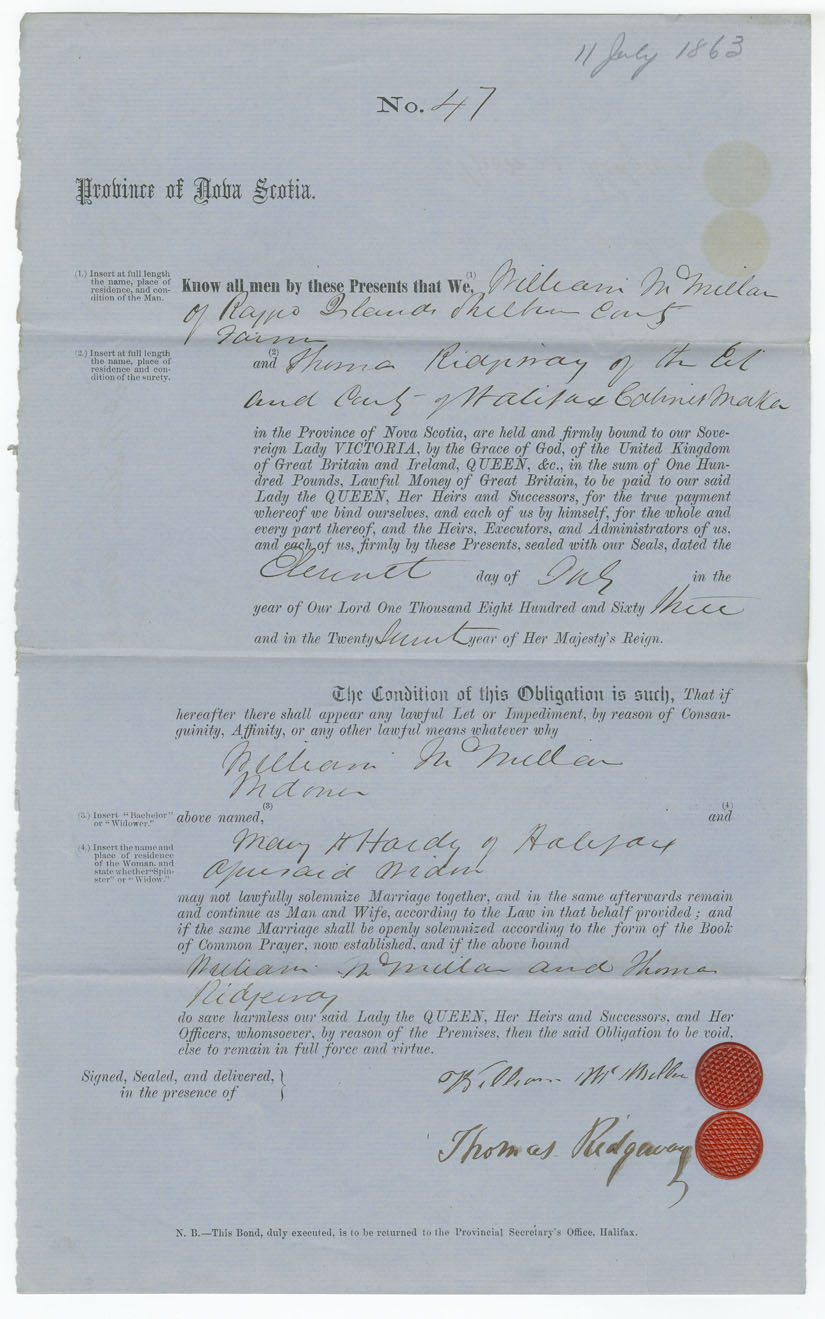 11 July 1863
No. 47
Province of Nova Scotia.
(1.) Insert at full length the name, place of residence, and condition of the Man.
Know all men by these Presents that We, (1) William McMillan
of Islands Shelburn County
(2.) Insert at full length the name, place of residence and condition of the surety.
and (2) Thomas Ridgeway of the
and County of Halifax Cabinet Maker
in the Province of Nova Scotia, are held and firmly bound to our Sove-
reign Lady VICTORIA, by the Grace of God, of the United Kingdom
of Great Britain and Ireland, QUEEN, &c., in the sum of One Hun-
dred Pounds, Lawful Money of Great Britain, to be paid to our said
Lady the QUEEN, Her Heirs and Successors, for the true payment
whereof we bind ourselves, and each of us by himself, for the whole and
every part thereof, and the Heirs, Executors, and Administrators of us.
and each of us, firmly by these Presents, sealed with our Seals, dated the
Eleventh day of July in the
year of Our Lord One Thousand Eight Hundred and Sixty three
and in the Twenty Seventh year of Her Majesty's Reign.
The Condition of this Obligation is such, That if
hereafter there shall appear any lawful Let or Impediment, by reason of Consan-
guinity, Affinity, or any other lawful means whatever why
William McMillan
Widower
(3.) Insert "Bachelor" or "Widower."
above named, (3) and (4)
(4.) Insert the name and place of residence of the Woman, and state whether "Spin-ster" or "Widow."
Mary H Hardy of Halifax
aforesaid Widow
may not lawfully solemnize Marriage together, and in the same afterwards remain
and continue as Man and Wife, according to the Law in that behalf provided; and
if the same Marriage shall be openly solemnized according to the form of the Book
of Common Prayer, now established, and if the above bound
William McMillan and Thomas
Ridgeway
do save harmless our said Lady the QUEEN, Her Heirs and Successors, and Her
Officers, whomsoever, by reason of the Premises, then the said Obligation to be void,
else to remain in full force and virtue.
Signed, Sealed, and delivered, in the presence of
William McMillan
Thomas Ridgeway
N. B.—This Bond, duly executed, is to be returned to the Provincial Secretary's Office, Halifax.